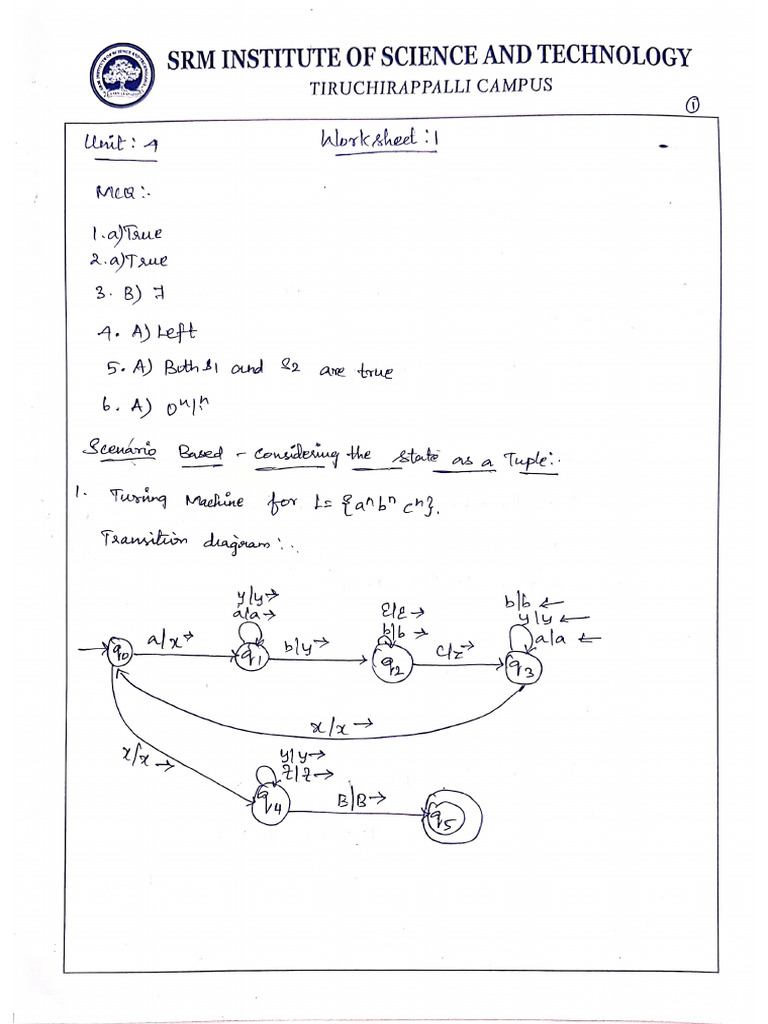 SRM INSTITUTE OF SCIENCE AND TECHNOLOGY
TIRUCHIRAPPALLI CAMPUS
1
Unit: 4 Worksheet: 1
MCQ:-
1. a) True
2. a) True
3. B) 7
4. A) Left
5. A) Both S1 and S2 are true
6. A) 0ⁿ1ⁿ
Scenario Based - Considering the state as a Tuple:-
1. Turing Machine for L = {aⁿbⁿcⁿ}.
Transition diagram:-
y/y→ z/z→ b/b←
a/a→ b/b→ y/y←
a/a←
q0 a/x→ q1 b/y→ q2 c/z→ q3
x/x→
x/x→
y/y→
z/z→
q4 B/B→ q5